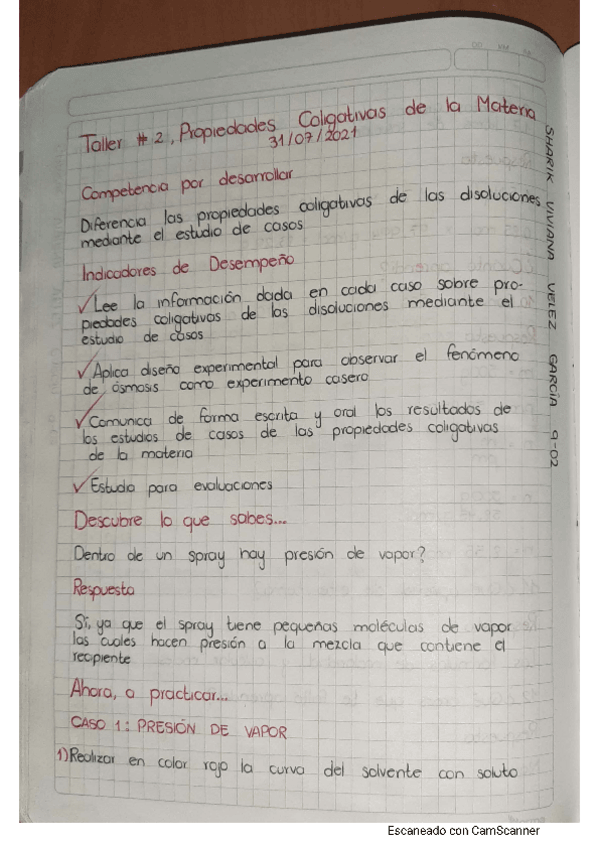 Taller # 2, Propiedades Coligativas de la Materia
31/07/2021
Competencia por desarrollar
Diferencia las propiedades coligativas de las disoluciones
mediante el estudio de casos
Indicadores de Desempeño
✓Lee la información dada en cada caso sobre pro-
piedades coligativas de las disoluciones mediante el
estudio de casos
✓Aplica diseño experimental para observar el fenómeno
de ósmosis como experimento casero
✓Comunica de forma escrita y oral los resultados de
los estudios de casos de las propiedades coligativas
de la materia
✓Estudio para evaluaciones
Descubre lo que sabes...
Dentro de un spray hay presión de vapor?
Respuesta
Sí, ya que el spray tiene pequeñas moléculas de vapor
las cuales hacen presión a la mezcla que contiene el
recipiente
Ahora, a practicar...
CASO 1: PRESIÓN DE VAPOR
1) Realizar en color rojo la curva del solvente con soluto
SHARIK VIVIANA VELEZ GARCÍA 9-02
Escaneado con CamScanner